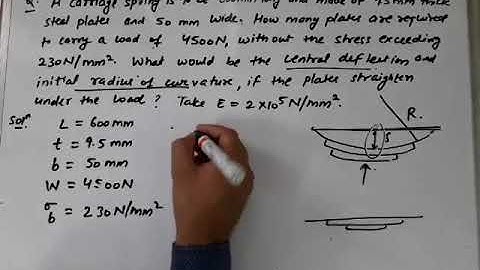 Q. A carriage spring is to be 600mm long and made of 9.5mm thick
steel plates and 50 mm wide. How many plates are required
to carry a load of 4500N, without the stress exceeding
230N/mm². What would be the central deflection and
initial radius of curvature, if the plates straighten
under the load? Take E = 2×10⁵N/mm².
Solⁿ
L = 600mm
t = 9.5mm
b = 50mm
W = 4500N
σb = 230N/mm²
R.
δ